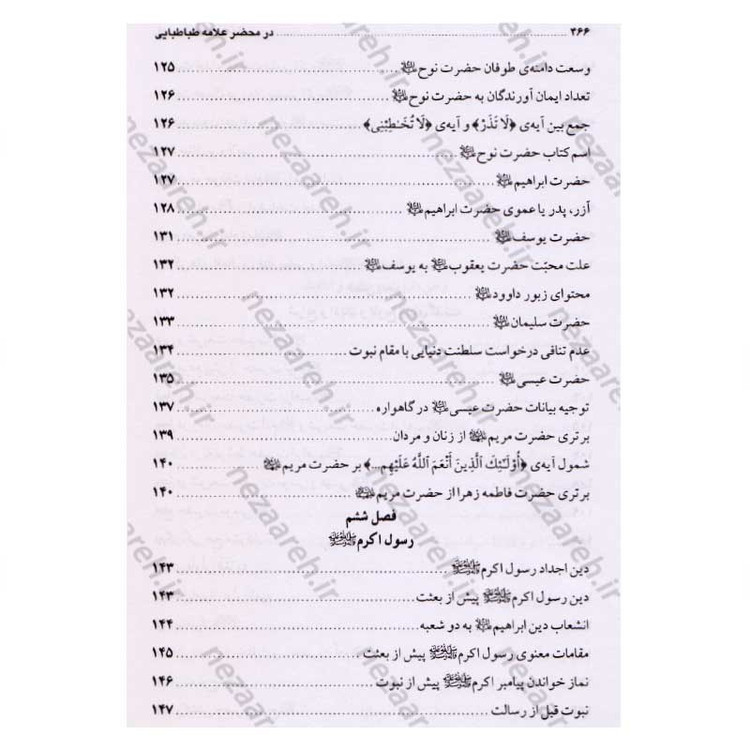 ۳۶۶ ........ در محضر علامه طباطبایی
وسعت دامنه‌ی طوفان حضرت نوح ........ ۱۲۵
تعداد ایمان آورندگان به حضرت نوح ........ ۱۲۶
جمع بین آیه‌ی ﴿لَا تَذَرْ﴾ و آیه‌ی ﴿لَا تُخَـٰطِبْنِی﴾ ........ ۱۲۶
اسم کتاب حضرت نوح ........ ۱۲۷
حضرت ابراهیم ........ ۱۲۷
آزر، پدر یا عموی حضرت ابراهیم ........ ۱۲۸
حضرت یوسف ........ ۱۳۱
علت محبّت حضرت یعقوب به یوسف ........ ۱۳۲
محتوای زبور داوود ........ ۱۳۲
حضرت سلیمان ........ ۱۳۳
عدم تنافی درخواست سلطنت دنیایی با مقام نبوت ........ ۱۳۴
حضرت عیسی ........ ۱۳۵
توجیه بیانات حضرت عیسی در گاهواره ........ ۱۳۷
برتری حضرت مریم از زنان و مردان ........ ۱۳۹
شمول آیه‌ی ﴿أُوْلَـٰئِكَ ٱلَّذِینَ أَنْعَمَ ٱللَّهُ عَلَیْهِم...﴾ بر حضرت مریم ........ ۱۴۰
برتری حضرت فاطمه زهرا از حضرت مریم ........ ۱۴۰
فصل ششم
رسول اکرم ﷺ
دین اجداد رسول اکرم ﷺ ........ ۱۴۳
دین رسول اکرم ﷺ پیش از بعثت ........ ۱۴۳
انشعاب دین ابراهیم به دو شعبه ........ ۱۴۴
مقامات معنوی رسول اکرم ﷺ پیش از بعثت ........ ۱۴۵
نماز خواندن پیامبر اکرم ﷺ پیش از نبوت ........ ۱۴۶
نبوت قبل از رسالت ........ ۱۴۷
nezaareh.ir